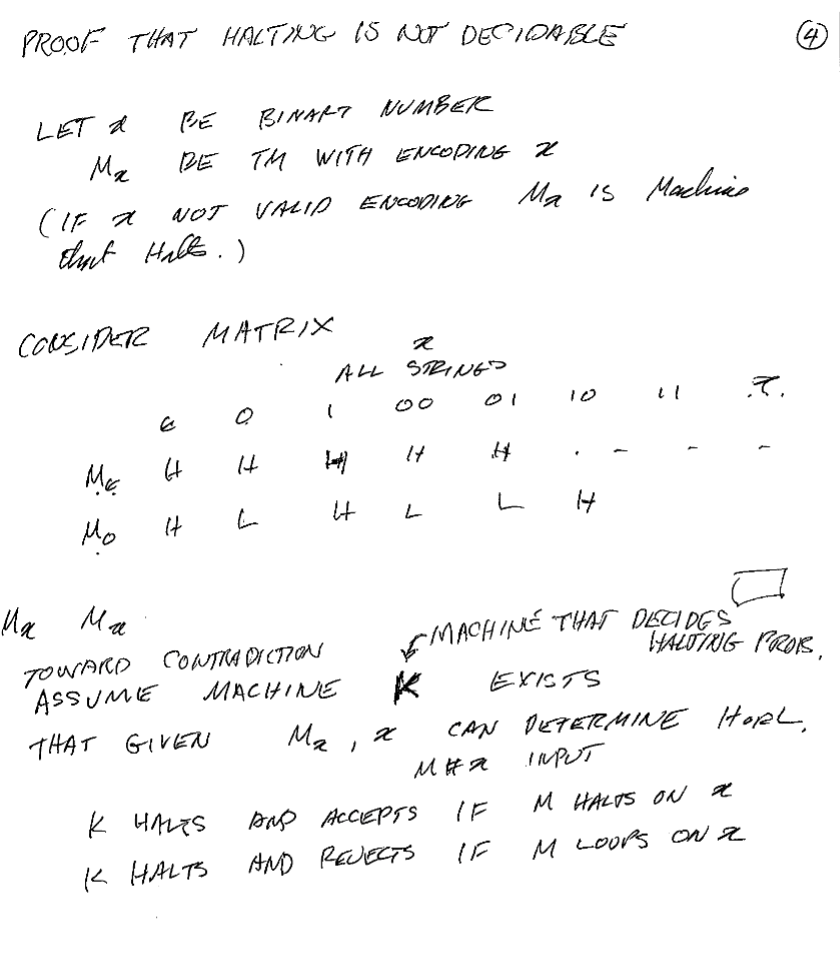 PROOF THAT HALTING IS NOT DECIDABLE ④
LET x BE BINARY NUMBER
Mx BE TM WITH ENCODING x
(IF x NOT VALID ENCODING Mx IS Machine
that Halts.)
CONSIDER MATRIX x
ALL STRINGS
ϵ 0 1 00 01 10 11 ...
Mϵ H H H H H . - - -
M0 H L H L L H
Mx Mx
MACHINE THAT DECIDES
HALTING PROB.
TOWARD CONTRADICTION
ASSUME MACHINE K EXISTS
THAT GIVEN Mx, x CAN DETERMINE HorL.
M#x INPUT
K HALTS AND ACCEPTS IF M HALTS ON x
K HALTS AND REJECTS IF M LOOPS ON x